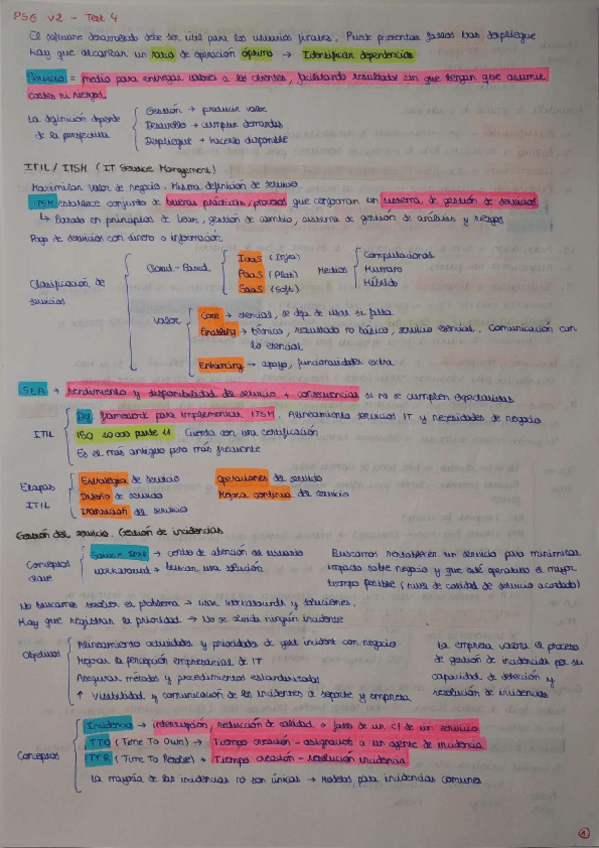 PSG v2 - Test 4
El software desarrollado debe ser útil para los usuarios finales. Puede presentar fallos tras despliegue
Hay que alcanzar un ratio de operación óptimo → Identificar dependencias
Servicio = medio para entregar valores a los clientes, facilitando resultados sin que tengan que asumir
costes ni riesgos
La definición depende
de la perspectiva
Gestión → producir valor
Desarrollo → cumplir demandas
Despliegue → hacerlo disponible
ITIL / ITSM (IT Service Management)
Maximizar valor de negocio. Misma definición de servicio
ITSM establece conjunto de buenas prácticas/procesos que conforman un sistema de gestión de servicios
↳ Basado en principios de lean, gestión de cambio, sistema de gestión de análisis y riesgos
Pago de servicios con dinero o información
Clasificación de
servicios
Cloud-Based
IaaS (Infra)
PaaS (Plat)
SaaS (Soft)
Medios
Computacional
Humano
Híbrido
Valor
Core → esencial, se deja de usar si falta
Enabling → técnico, resultado no básico, servicio esencial. Comunicación con
lo esencial
Enhancing → apoyo, funcionalidades extra
SLA → rendimiento y disponibilidad del servicio + consecuencias si no se cumplen expectativas
ITIL
framework para implementar ITSM. Alineamiento servicios IT y necesidades de negocio
ISO 20000 parte 11. Cuenta con una certificación
Es el más antiguo pero más frecuente
Etapas
ITIL
Estrategia de servicio
Diseño de servicio
Transición del servicio
Operaciones del servicio
Mejora continua del servicio
Gestión del servicio. Gestión de incidencias
Conceptos
clave
Service Desk → centro de atención al usuario
Workaround → buscar una solución
Buscamos restablecer un servicio para minimizar
impacto sobre negocio y que esté operativo el mayor
tiempo posible (nivel de calidad de servicio acordado)
No buscamos resolver el problema → usar workarounds y soluciones.
Hay que registrar la prioridad → No se olvida ningún incidente
Objetivos
Alineamiento actividades y prioridades de gest incident con negocio
Mejorar la percepción empresarial de IT
Asegurar métodos y procedimientos estandarizados
↑ Visibilidad y comunicación de los incidentes a soporte y empresa
La empresa valora el proceso
de gestión de incidencias por su
capacidad de detección y
resolución de incidencias
Conceptos
Incidencia → interrupción, reducción de calidad o fallo de un CI de un servicio
TTO (Time To Own) → Tiempo creación - asignación a un agente de incidencia
TTR (Time To Resolve) → Tiempo creación - resolución incidencia
La mayoría de las incidencias no son únicas → Modelos para incidencias comunes
1